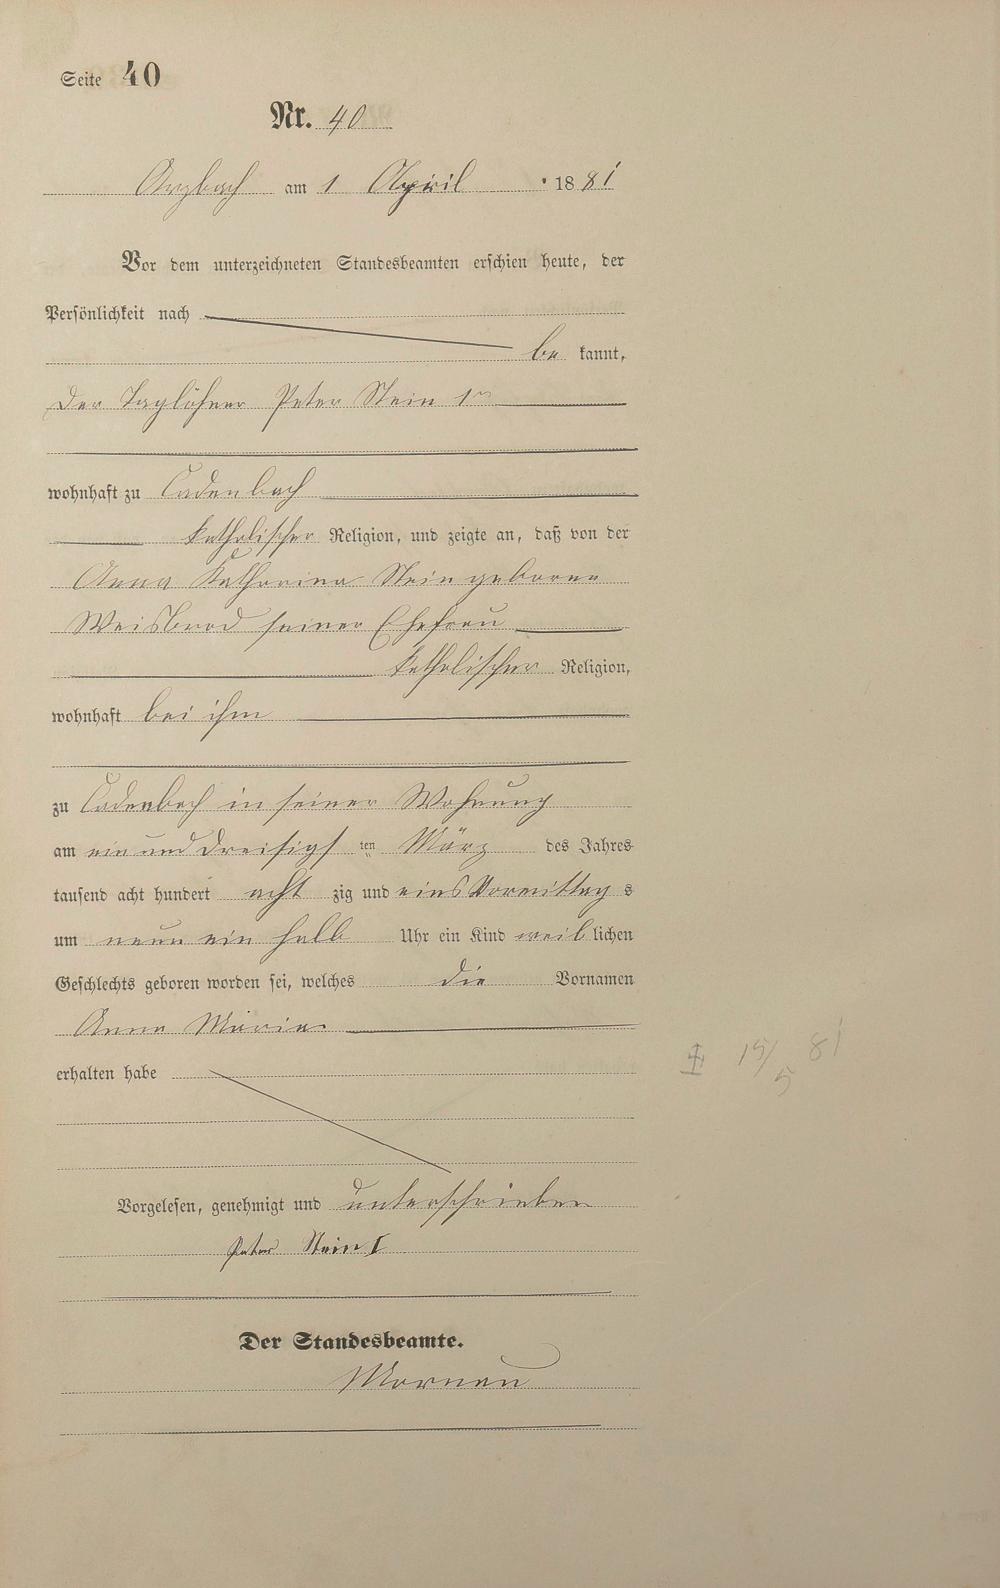 Seite 40
Nr. 40
Arzbach am 1 April 1881
Vor dem unterzeichneten Standesbeamten erschien heute, der
Persönlichkeit nach
be kannt,
der Taglöhner Peter Stein 1r
wohnhaft zu Cadenbach
katholischer Religion, und zeigte an, daß von der
Anna Katharina Stein geborene
Weisbrod seiner Ehefrau
katholischer Religion,
wohnhaft bei ihm
zu Cadenbach in seiner Wohnung
am ein und dreisigst ten März des Jahres
tausend acht hundert acht zig und eins Vormittag s
um neun ein halb Uhr ein Kind weib lichen
Geschlechts geboren worden sei, welches die Vornamen
Anna Maria
erhalten habe
15/5 81
Vorgelesen, genehmigt und unterschrieben
Peter Stein I
Der Standesbeamte.